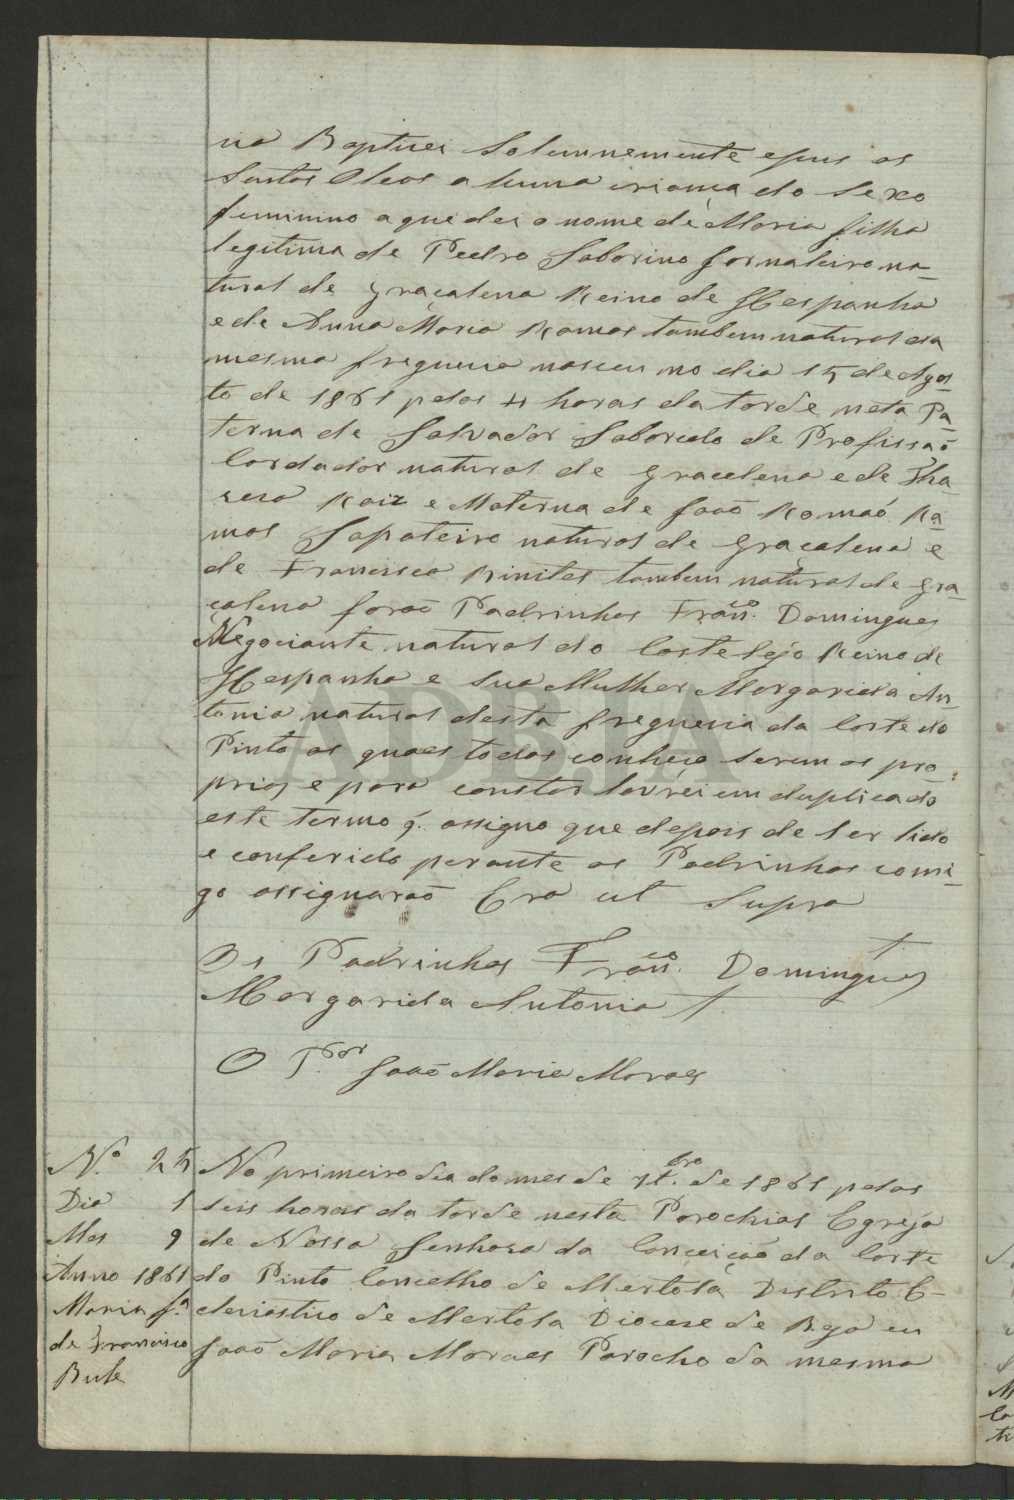 na Baptizei Solemnemente e puz os
Santos Oleos a huma criança do Sexo
feminino a quem dei o nome de Maria filha
legitima de Pedro Saborino jornaleiro na-
tural de Graçalena Reino de Hespanha
e de Anna Maria Ramos tambem natural da
mesma freguezia nasceu no dia 15 de Agos-
to de 1861 pelas 4 horas da tarde neta Pa-
terna de Salvador Saborido de Profissaõ
Cardador natural de Gracelena e de Tha-
reza Roiz e Materna de Joaõ Romaõ Ra-
mos Sapateiro natural de Graçalena e
de Francisca tambem natural de Gra-
çalena foraõ Padrinhos Franco. Domingues
Negociante natural do Castelejo Reino de
Hespanha e sua Mulher Margarida An-
tonia natural desta freguezia da Corte do
Pinto os quaes todos conheço serem os pro-
prios e para constar lavrei em duplicado
este termo q. assigno que depois de ser lido
e conferido perante os Padrinhos comi-
go assignaraõ Era ut Supra
Os Padrinhos Franco. Domingues †
Margarida Antonia †
O P.or Joaõ Maria Moraes
N.o 25
Dia 1
Mes 9
Anno 1861
Maria f.a
de Francisco
No primeiro dia do mes de 7t.bro de 1861 pelas
seis horas da tarde nesta Parochial Egreja
de Nossa Senhora da Conceiçaõ da Corte
do Pinto Concelho de Mertola Distrito E-
cleziastico de Mertola Diocese de Beja eu
Joaõ Maria Moraes Parocho da mesma
ADBJA